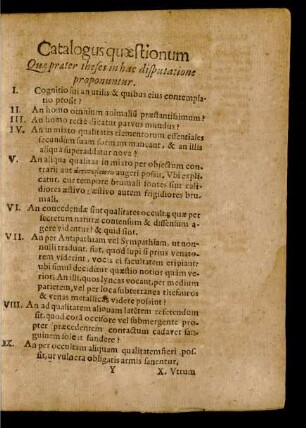 Catalogus quæstionum
Quæ præter theses in hac disputatione
proponuntur.
I. Cognitio sui an utilis & quibus eius contempla-
tio prosit?
II. An homo omnium animaliũ præstantissimum?
III. An homo recte dicatur parvus mundus?
IV. An in mixto qualitatis elementorum essentiales
secundum suam formam maneant, & an illis
aliqua superaddatur nova?
V. An aliqua qualitas in mixto per objectum con-
trarii aut augeri possit, Vbi expli-
catur, cur tempore brumali fontes sint cali-
diores æstivo; æstivo autem frigidiores bru-
mali.
VI. An concedendæ sint qualitates occultę quæ per
secretum naturæ consensum & dissensum a-
gere videntur? & quid sint.
VII. An per Antipathiam vel Sympathiam, ut non-
nulli tradunt, fiat, quod lupi si prius venato-
rem viderint, vocis ei facultatem eripiant:
ubi simul deciditur quæstio notior quàm ve-
rior: An illi, quos lynceas vocant, per medium
parietem, vel per loca subterranea thesauros
& venas metallicas videre possint?
VIII. An ad qualitatem aliquam latẽtem referendum
sit, quod corã occisore vel submergente pro-
pter præcedentem contactum cadaver san-
guinem soleat fundere?
IX. An per occultam aliquam qualitatem fieri pos-
sit, ut vulnera obligatis armis sanentur.
Y X. Vtrum